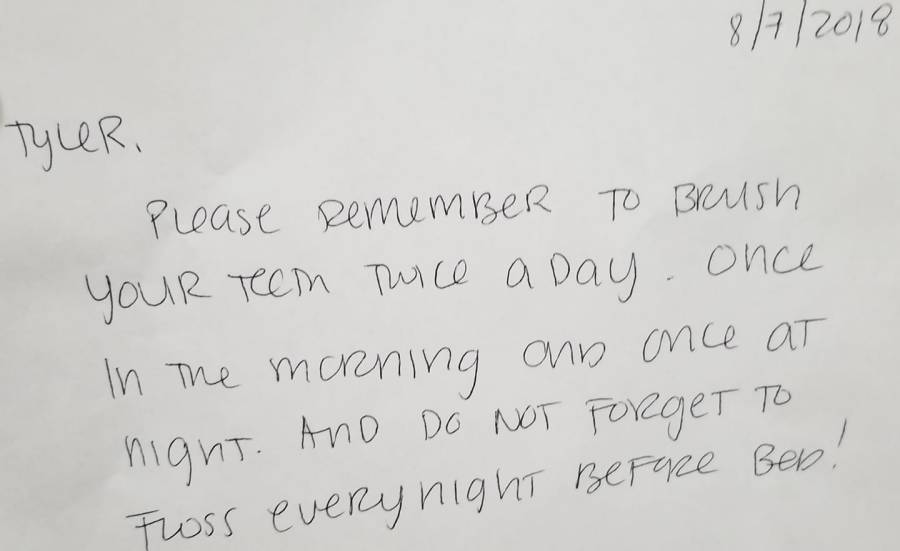 8/7/2018
Tyler.
Please remember to brush
your teeth twice a day. Once
in the morning and once at
night. And do not forget to
floss every night before bed!